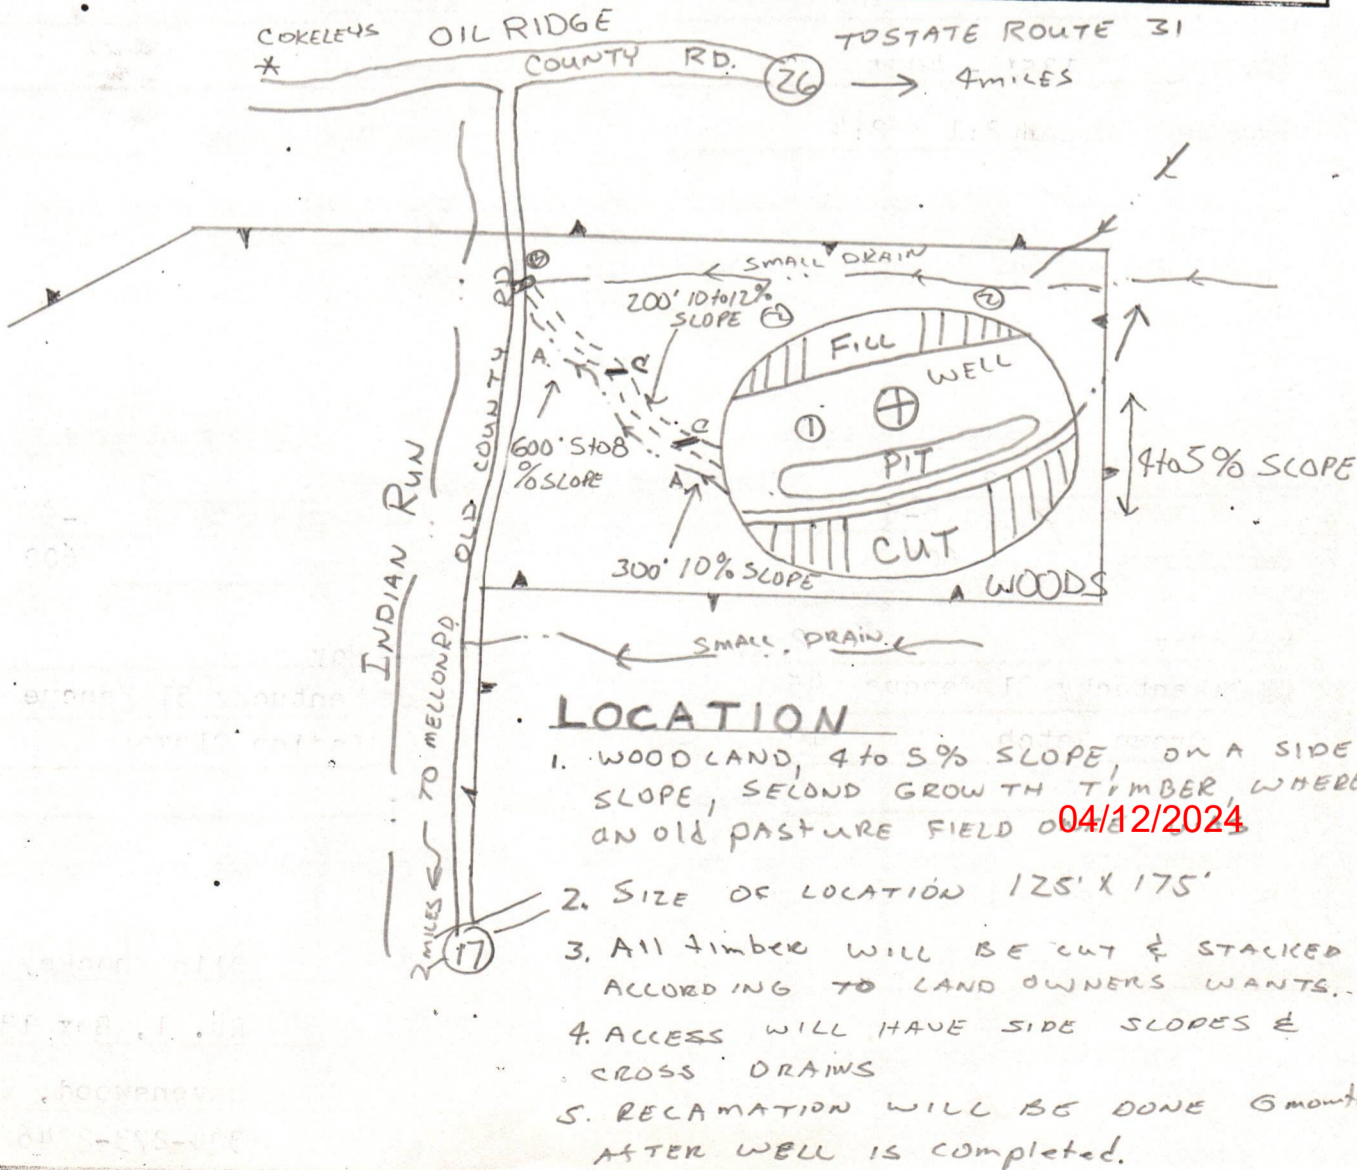 COKELEYS OIL RIDGE
*
COUNTY RD. 26
TO STATE ROUTE 31
→ 4 MILES
SMALL DRAIN
4
2
200' 10 to 12%
SLOPE
FILL
WELL
1
PIT
CUT
A
C
C
A
600' 5 to 8
% SLOPE
300' 10% SLOPE
4 to 5% SLOPE
WOODS
INDIAN RUN
OLD COUNTY RD
SMALL DRAIN
2 MILES ← TO MELLON RD
17
LOCATION
1. WOODLAND, 4 to 5% SLOPE, ON A SIDE
SLOPE, SECOND GROWTH TIMBER, WHERE
AN old PASTURE FIELD
04/12/2024
2. SIZE OF LOCATION 125' X 175'
3. All timber WILL BE CUT & STACKED
ACCORDING TO LAND OWNERS WANTS.
4. ACCESS WILL HAVE SIDE SLOPES &
CROSS DRAINS
5. RECAMATION WILL BE DONE 6 mont
AFTER WELL IS completed.